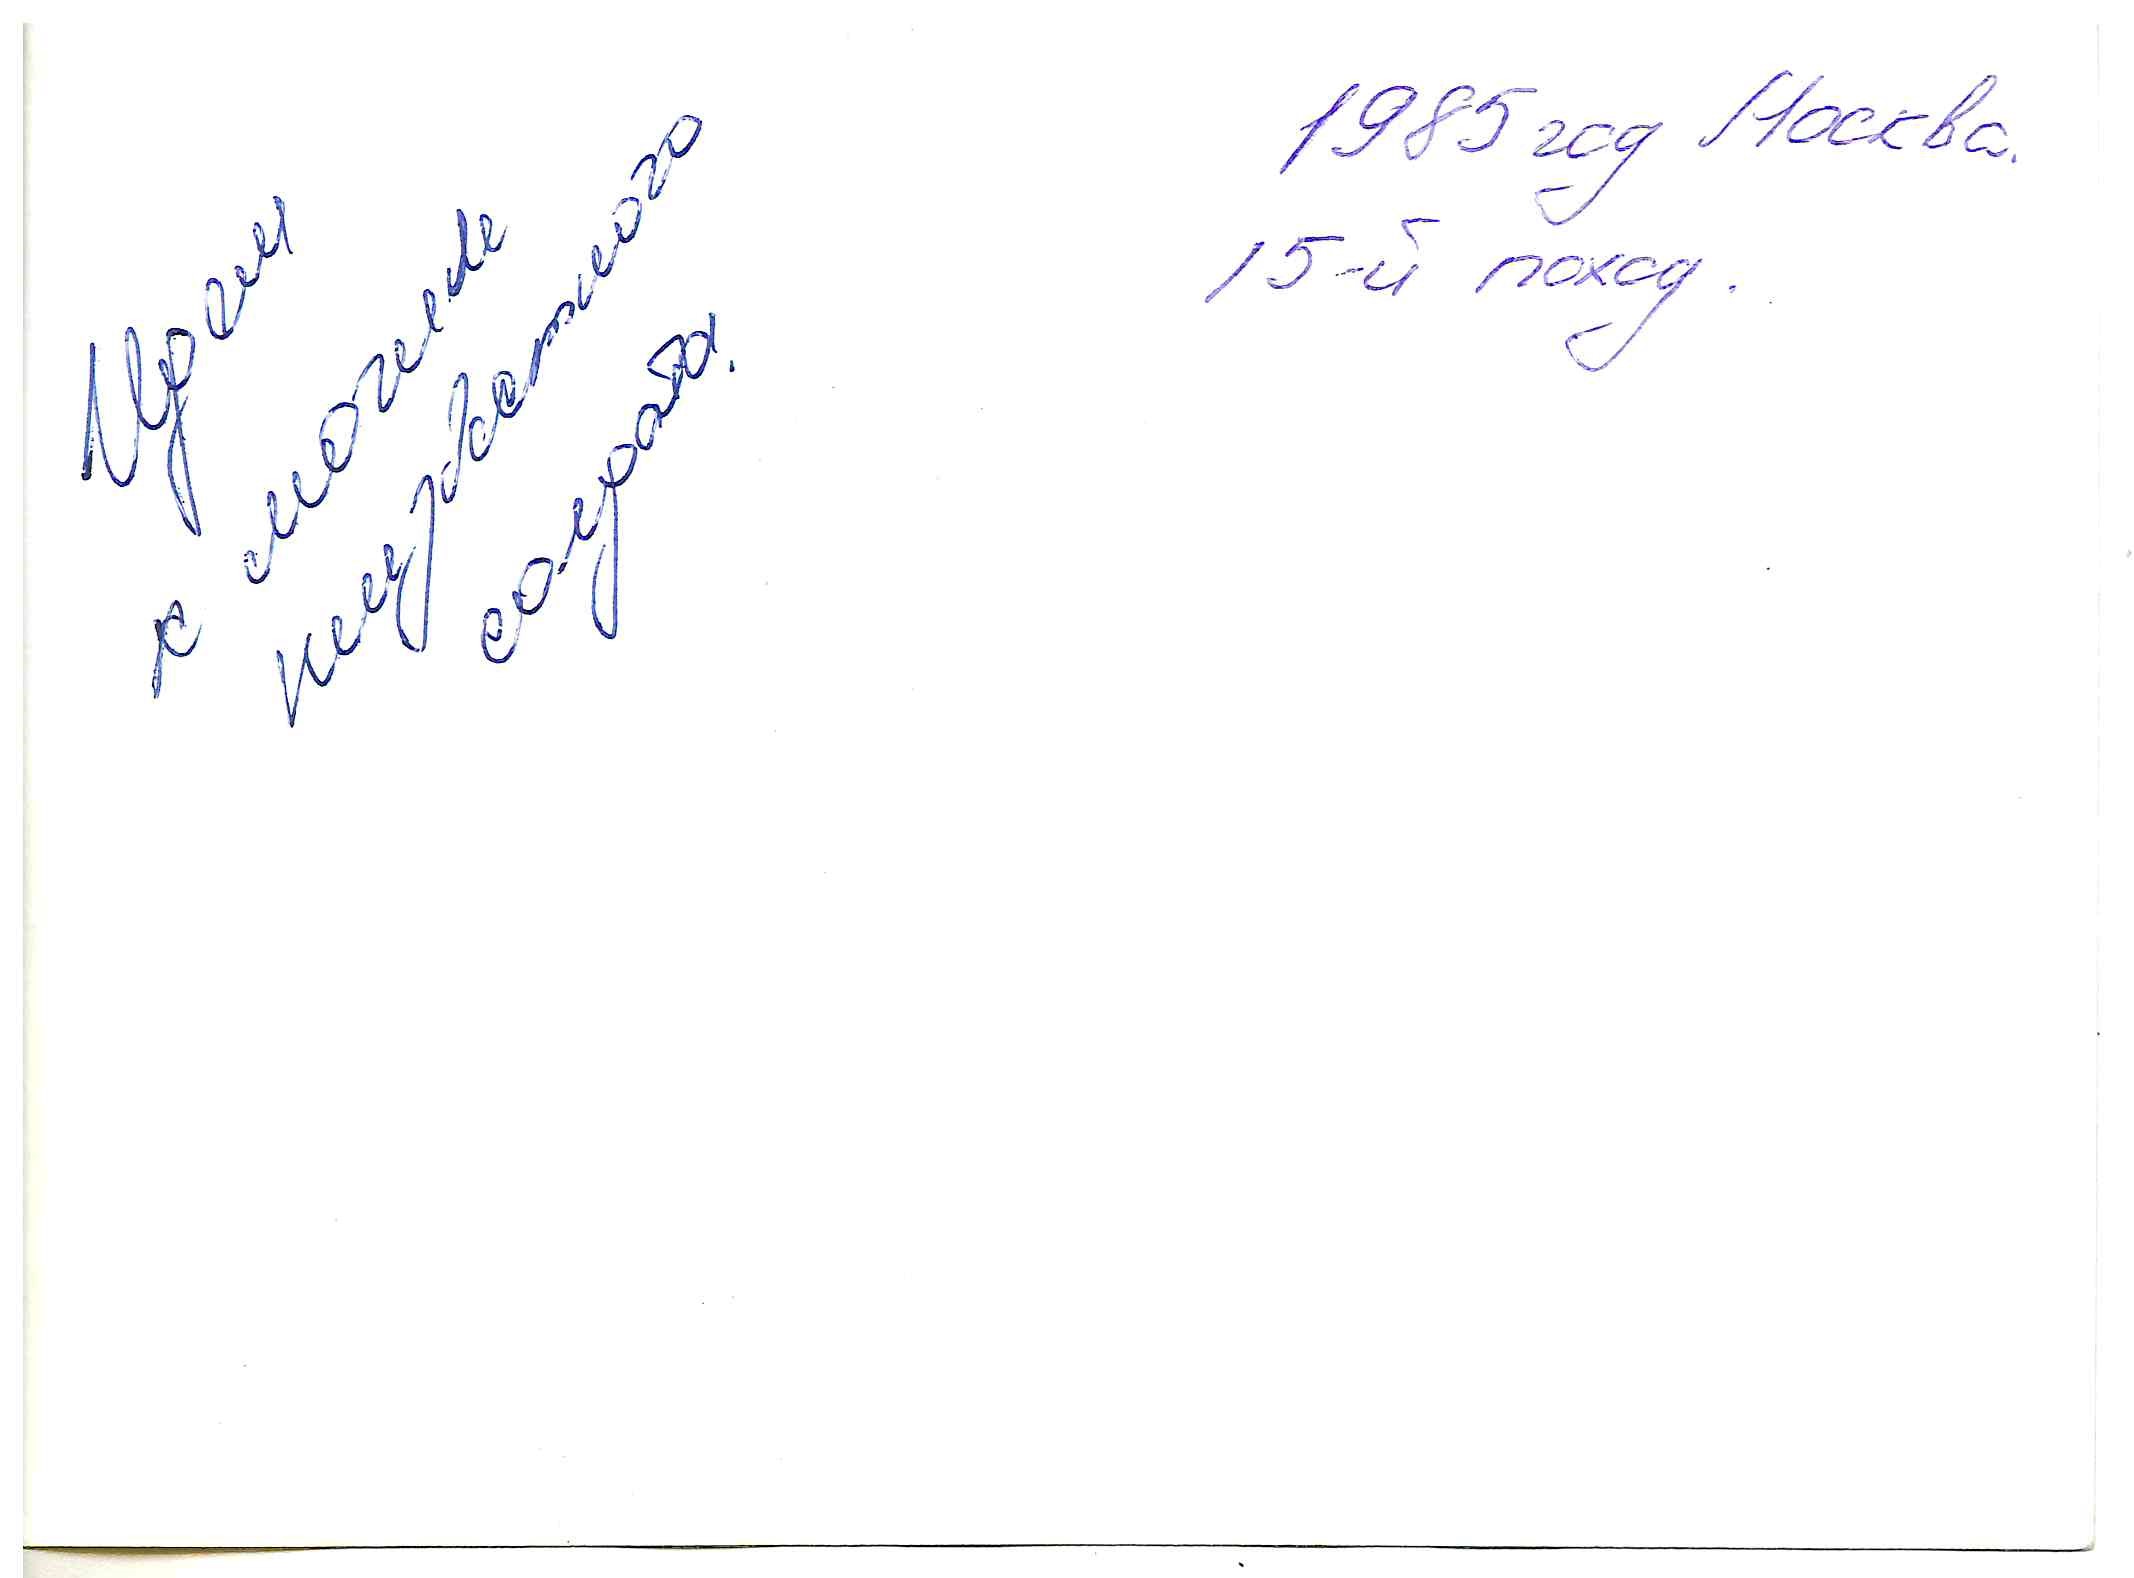 Идем
к могиле
неизвестного
солдата.
1985 год Москва.
15-й поход.